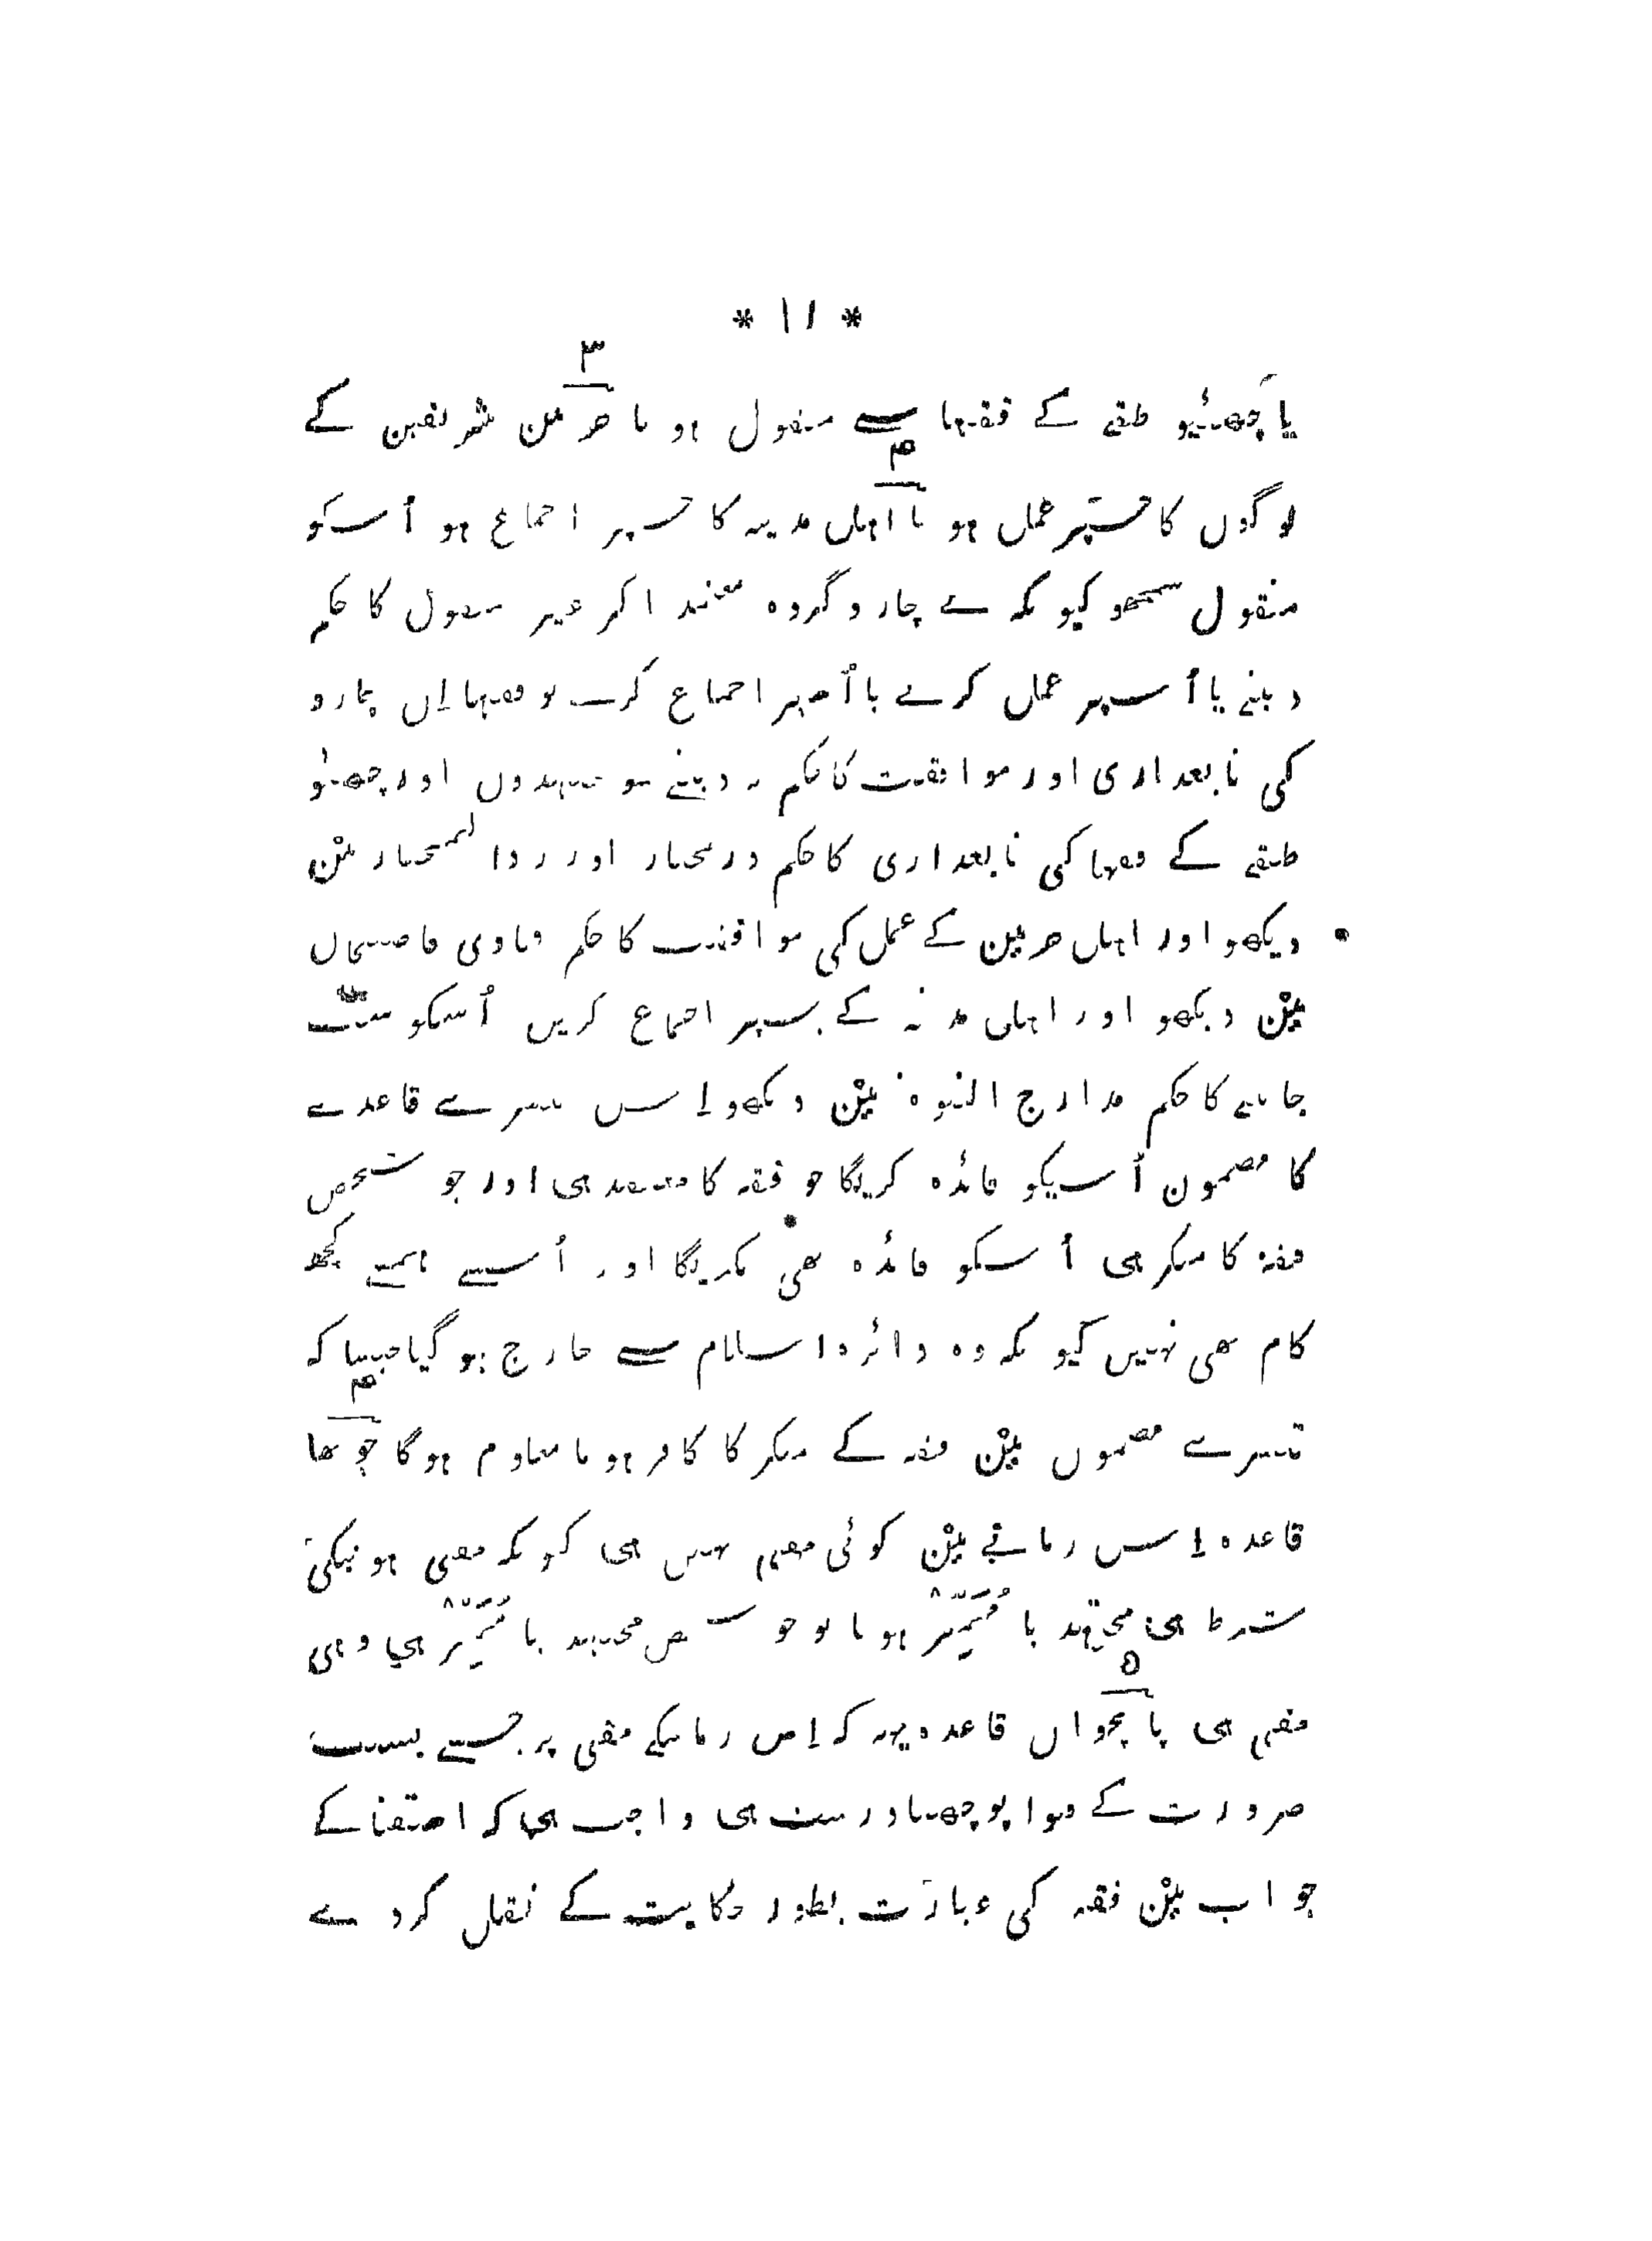 * ١١ *
٣
یا چھٹیو طبقے کے فقہا سے منقول ہو یا حرمین شریفین کے
۴
لوگوں کا جسپر عمل ہو یا اہل مدینہ کا جسپر اجماع ہو اُسکو
منقول سمجھو کیونکہ یے چارو گروہ معتمد اگر غیر منقول کا حکم
دیتے یا اُسپر عمل کرتے یا اُسپر اجماع کرتے تو فقہا اِن چارو
کی تابعداری اور موافقت کا حکم نہ دیتے سو مجتہدوں اور چھٹو
طبقے کے فقہا کی تابعداری کا حکم درمختار اور ردالمحتار میں
دیکھو اور اہل حرمین کے عمل کی موافقت کا حکم فتاوی قاضیخاں
میں دیکھو اور اہل مدینہ کے جسپر اجماع کریں اُسکو سنّت
جاننے کا حکم مدارج النبوة میں دیکھو اِس تیسرے قاعدے
کا مضمون اُسیکو فائدہ کریگا جو فقہ کا معتقد ہی اور جو شخص
فقہ کا منکر ہی اُسکو فائدہ بھی نکریگا اور اُسسے ہمسے کچھ
کام بھی نہیں کیونکہ وہ دائرہ اسلام سے خارج ہو گیا جیسا کہ
۴
تیسرے مضموں میں فقہ کے منکر کا کافر ہونا معلوم ہوگا چوتھا
قاعدہ اِس زمانے میں کوئی مفتی نہیں ہی کیونکہ مفتی ہونیکی
شرط ہی مجتہد یا مُمَیِّز ہونا تو جو شخص مجتہد یا مُمَیِّز ہی وہی
۵
مفتی ہی پانچواں قاعدہ یہہ کہ اِس زمانیکے مفتی پر جسسے بسبب
ضرورت کے فتوا پوچھنا درست ہی واجب ہی کہ استفتا کے
جواب میں فقہ کی عبارت بطور حکایت کے نقل کر دے